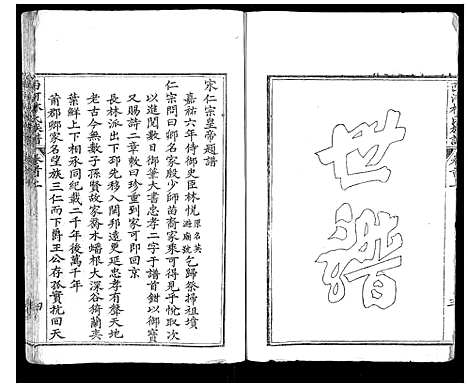 世譜
宋仁宗皇帝題譜
嘉祐六年侍御史臣林悅原名英避廟號乞歸祭掃祖墳
仁宗問曰卿名家殷少師苗裔家乘可得見乎悅取次
以進閱數日御筆大書忠孝二字于譜首鈐以御寶
又賜詩二章敕曰珍重到家可即回京
長林派出下邳先移入閩邦遠更延忠孝有聲天地
老古今無數子孫賢故家喬木蟠根大深谷猗蘭奕
葉鮮上下相承同紀載二千年後萬千年
莆郡卿家名望族三仁而下爵王公存孤實抗回天